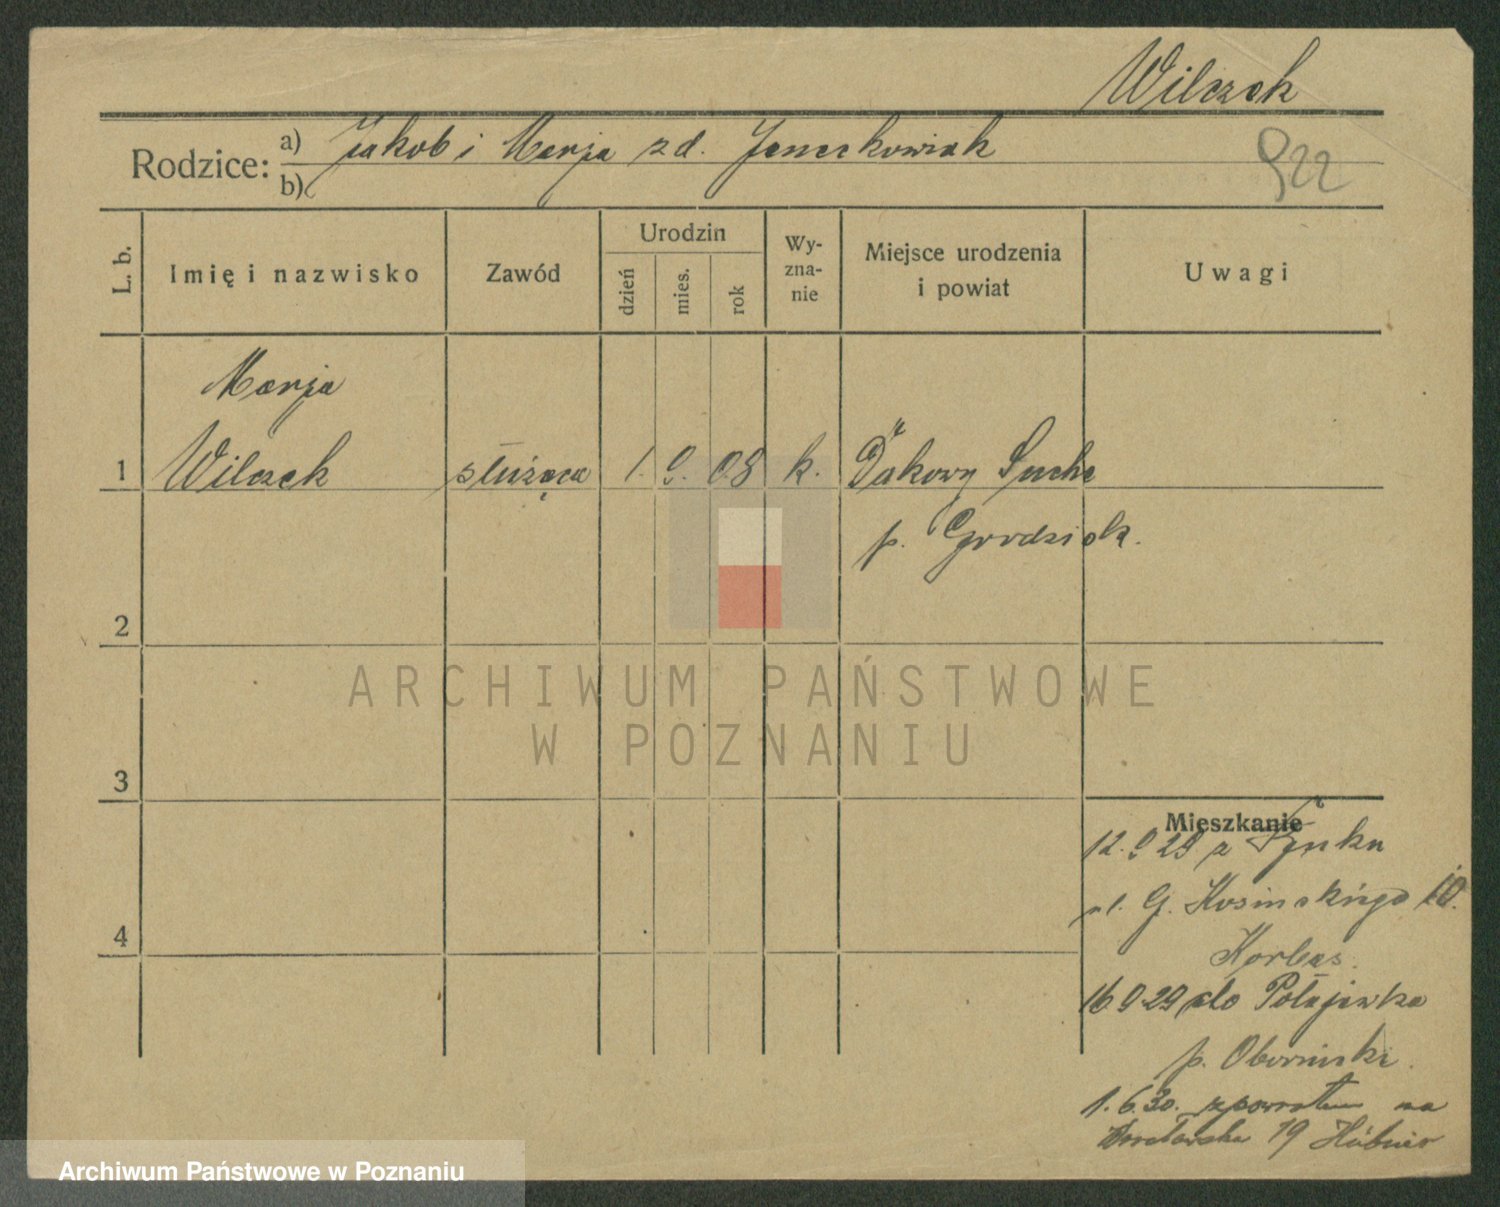 Wilczek
Rodzice: a) Jakob i Marja zd. Janeckowiak
b)
922
L. b.
Imię i nazwisko
Zawód
Urodzin
dzień
mies.
rok
Wy-
zna-
nie
Miejsce urodzenia
i powiat
Uwagi
Marja
1 Wilczek służąca 1. 9. 08 k. Dakowy Suche
p. Grodzisk.
2
3
4
Mieszkanie
12.9 29 z Rynku
ul. G. Kosinskiego 10.
Korbas.
16 9 29 do Połajewka
p. Obornicki.
1.6.30. zpowrotem na
Wrocławska 19 Hübner
ARCHIWUM PAŃSTWOWE
W POZNANIU
Archiwum Państwowe w Poznaniu